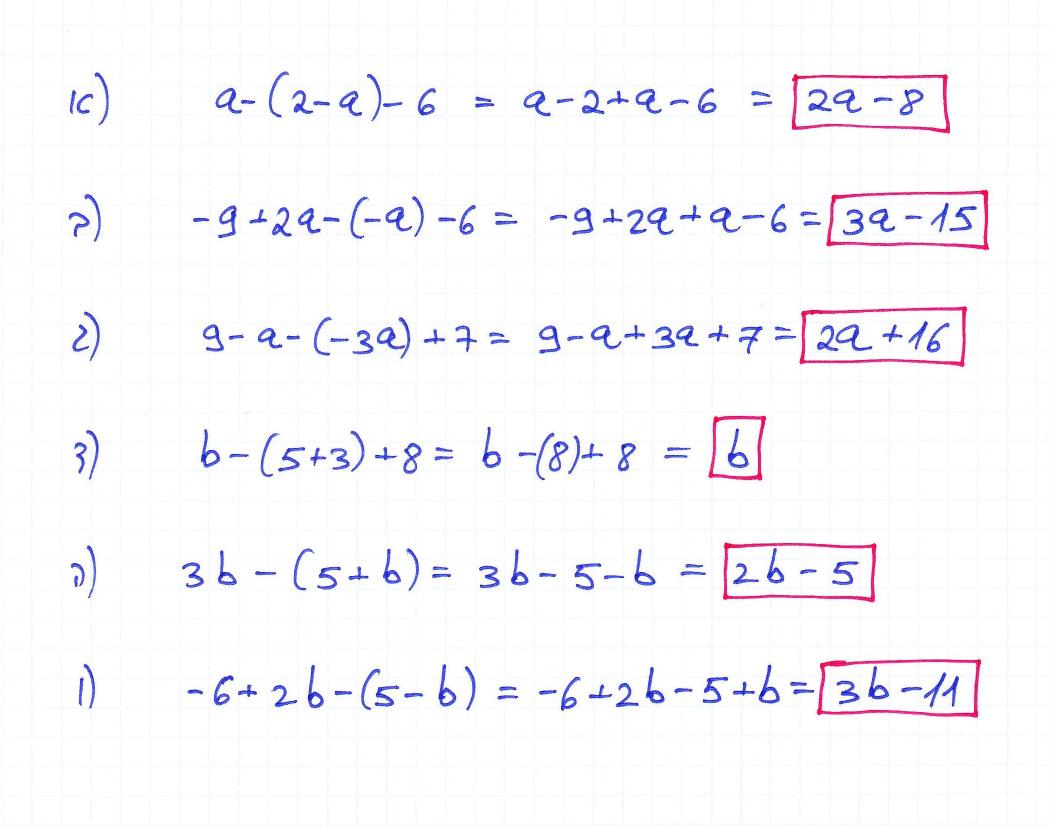 א) a-(2-a)-6 = a-2+a-6 = 2a-8
ב) -9+2a-(-a)-6 = -9+2a+a-6 = 3a-15
ג) 9-a-(-3a)+7 = 9-a+3a+7 = 2a+16
ד) b-(5+3)+8 = b-(8)+8 = b
ה) 3b-(5+b) = 3b-5-b = 2b-5
ו) -6+2b-(5-b) = -6+2b-5+b = 3b-11